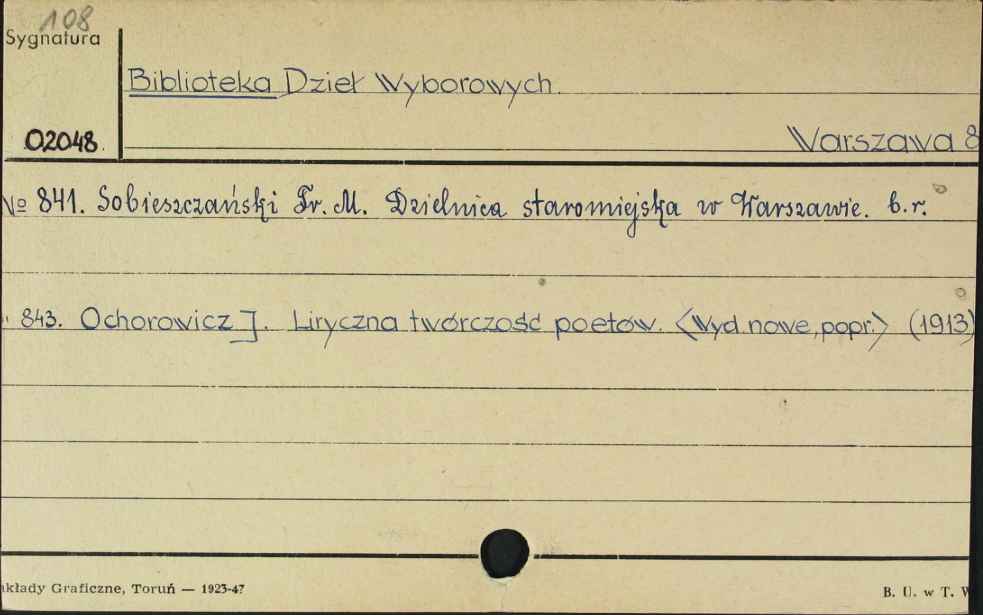 108
Sygnatura
Biblioteka Dzieł Wyborowych.
02048.
Warszawa 8
№ 841. Sobieszczański Fr. M. Dzielnica staromiejska w Warszawie. b.r.
" 843. Ochorowicz J. Liryczna twórczość poetów. <Wyd. nowe, popr.> (1913)
akłady Graficzne, Toruń — 1923-47
B. U. w T. W